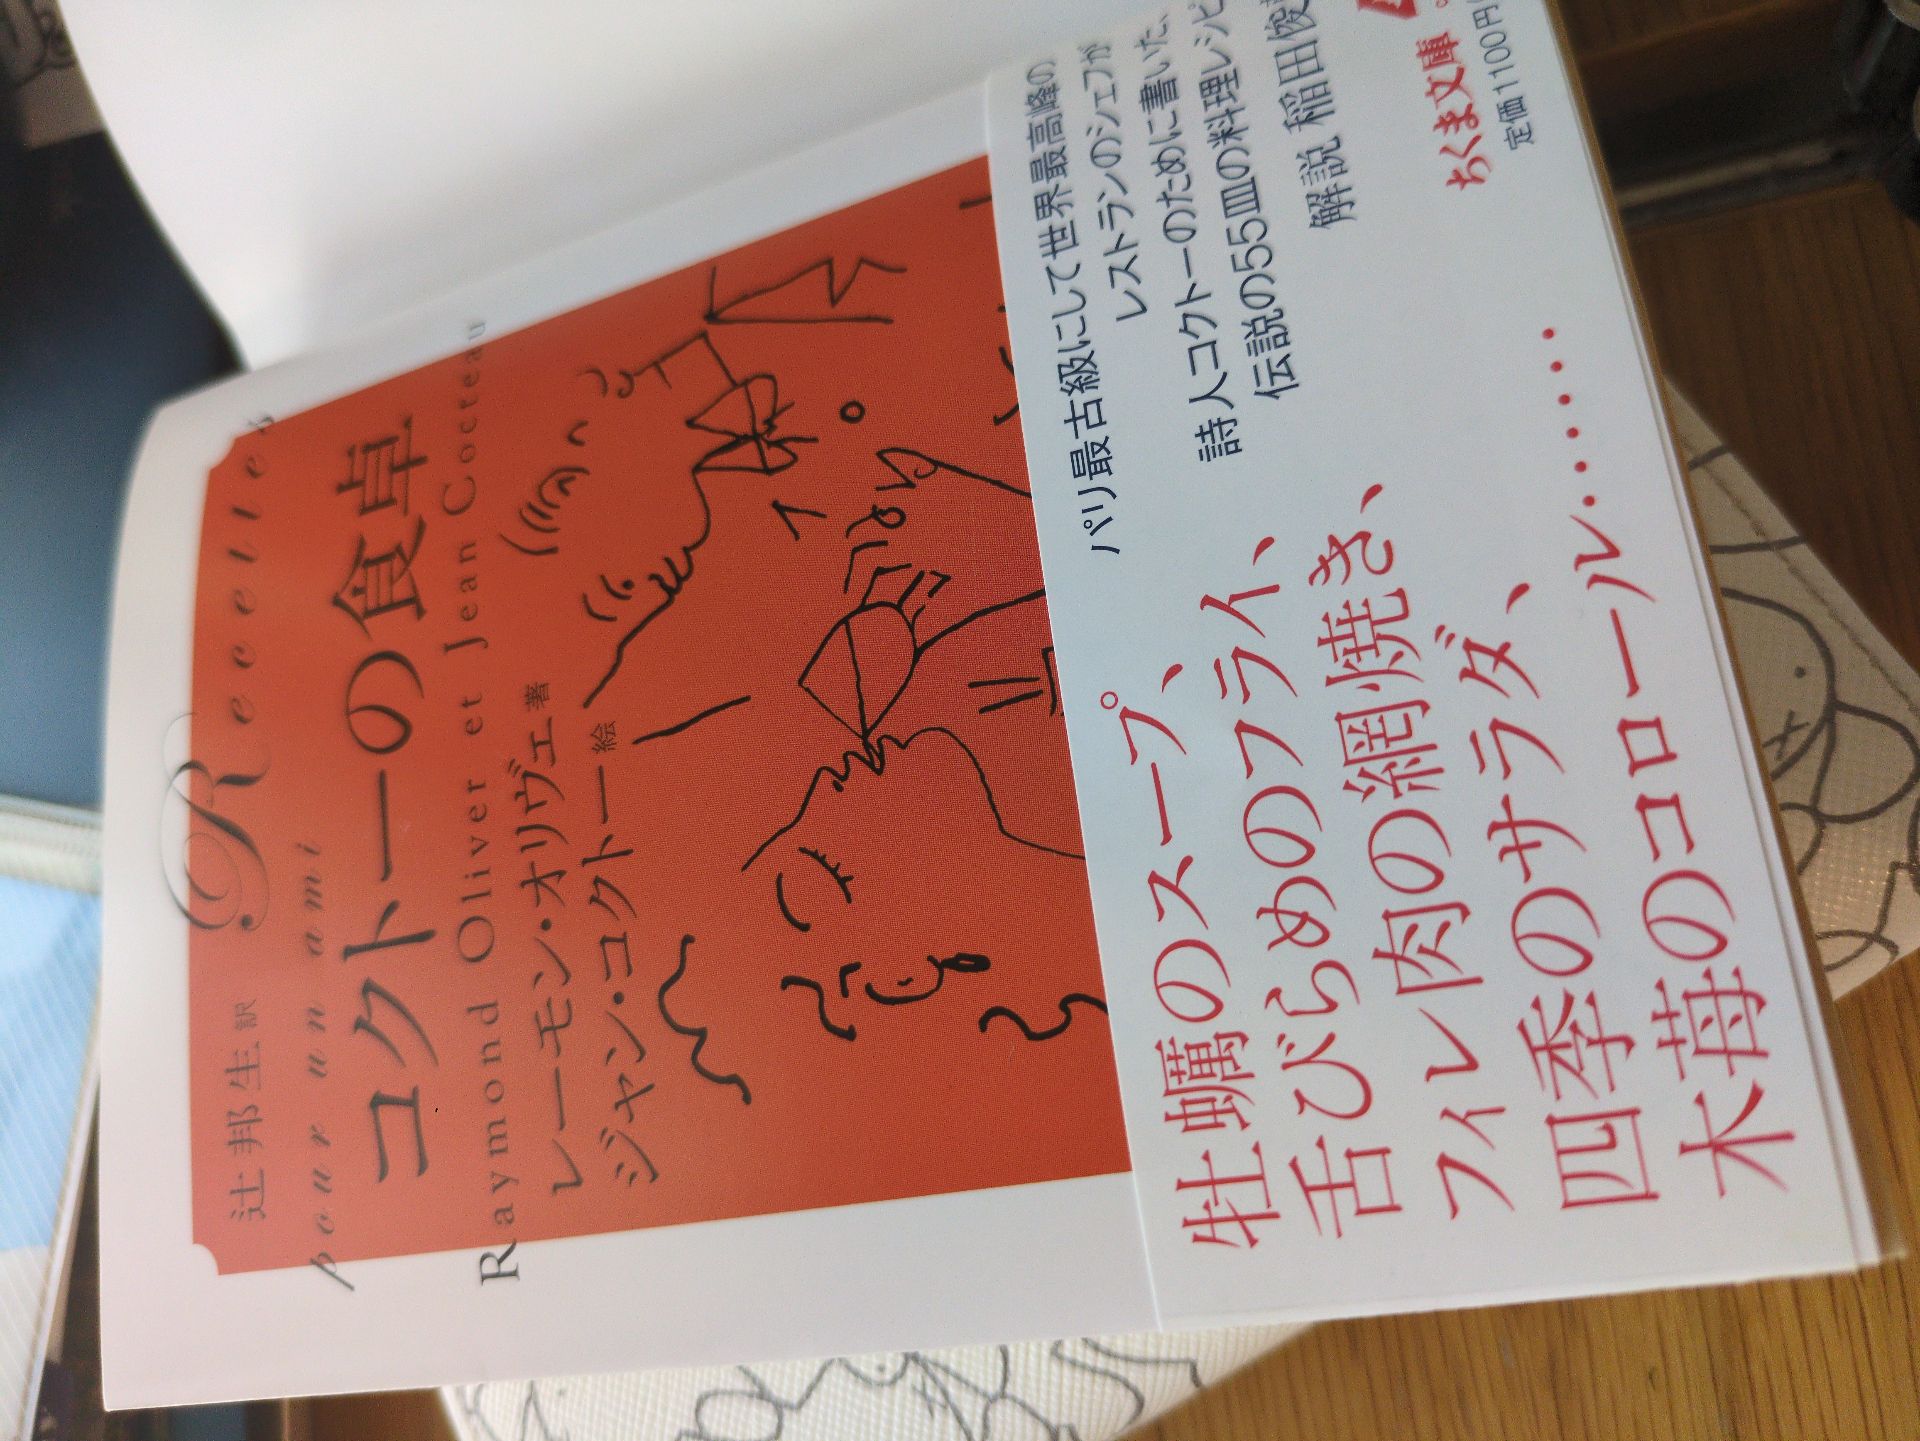 Recettes
辻邦生 訳
pour un ami
コクトーの食卓
Raymond Oliver et Jean Cocteau
レーモン・オリヴェ 著
ジャン・コクトー 絵
パリ最古級にして世界最高峰の
レストランのシェフが
詩人コクトーのために書いた、
伝説の55皿の料理レシピ
解説 稲田俊
牡蠣のスープ、
舌びらめのフライ、
フィレ肉の網焼き、
四季のサラダ、
木苺のコロール……
ちくま文庫
定価1100円